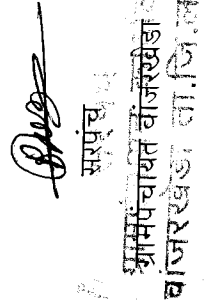 सरपंच
ग्रामपंचायत वांजरखेडा
वांजरखेडा ता.जि.